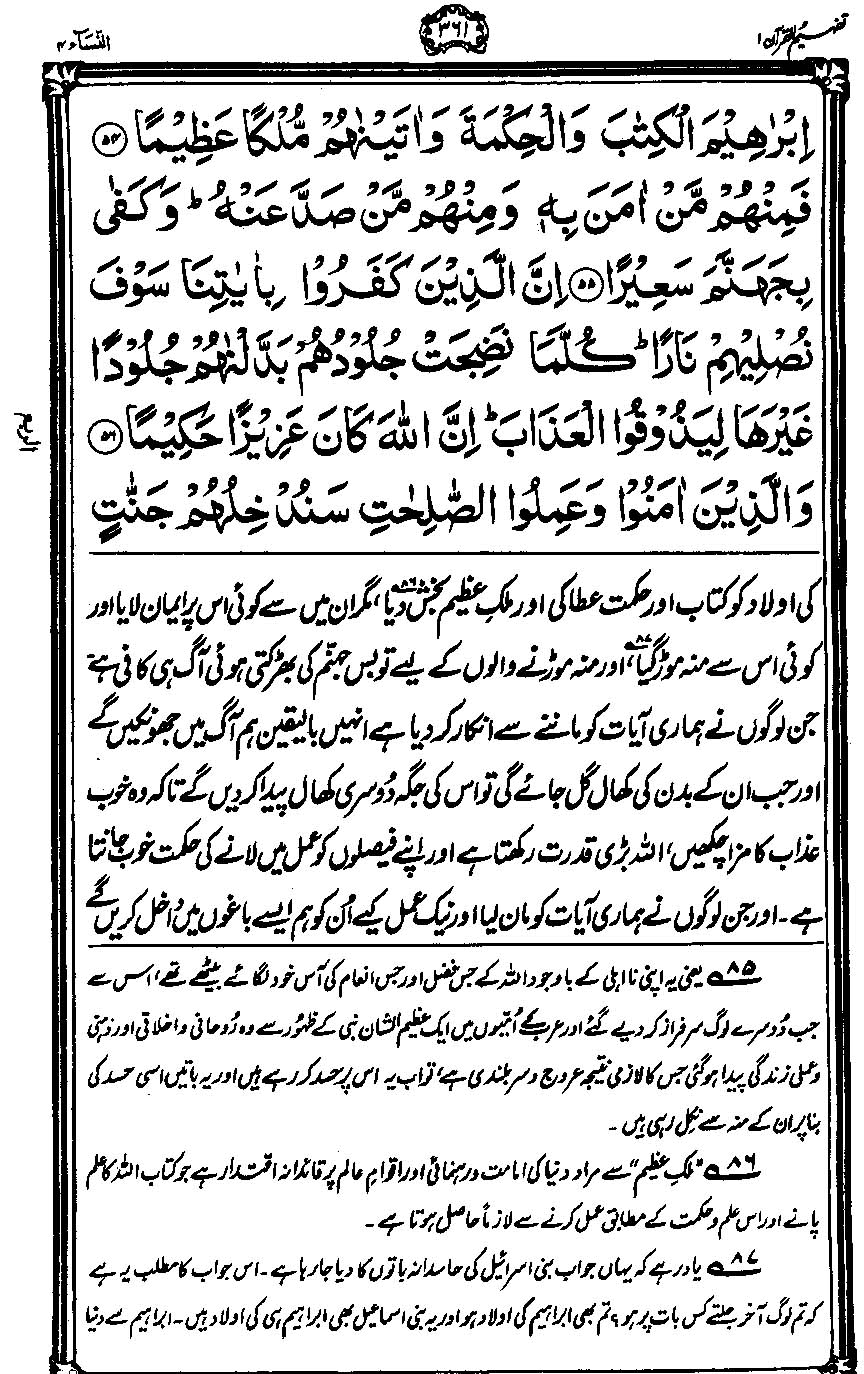 تفہیم القرآن ۱
۳۶۱
النساء ۴
اِبْرٰهِيْمَ الْكِتٰبَ وَالْحِكْمَةَ وَاٰتَيْنٰهُمْ مُّلْكًا عَظِيْمًا ﴿۵۴﴾
فَمِنْهُمْ مَّنْ اٰمَنَ بِهٖ وَمِنْهُمْ مَّنْ صَدَّ عَنْهُ ؕ وَكَفٰى
بِجَهَنَّمَ سَعِيْرًا ﴿۵۵﴾ اِنَّ الَّذِيْنَ كَفَرُوْا بِاٰيٰتِنَا سَوْفَ
نُصْلِيْهِمْ نَارًا ؕ كُلَّمَا نَضِجَتْ جُلُوْدُهُمْ بَدَّلْنٰهُمْ جُلُوْدًا
غَيْرَهَا لِيَذُوْقُوا الْعَذَابَ ؕ اِنَّ اللّٰهَ كَانَ عَزِيْزًا حَكِيْمًا ﴿۵۶﴾
وَالَّذِيْنَ اٰمَنُوْا وَعَمِلُوا الصّٰلِحٰتِ سَنُدْخِلُهُمْ جَنّٰتٍ
الربع
کی اولاد کو کتاب اور حکمت عطا کی اور ملکِ عظیم بخش دیا۸۶، مگر ان میں سے کوئی اس پر ایمان لایا اور
کوئی اس سے منہ موڑ گیا۸۷، اور منہ موڑنے والوں کے لیے تو بس جہنّم کی بھڑکتی ہوئی آگ ہی کافی ہے
جن لوگوں نے ہماری آیات کو ماننے سے انکار کر دیا ہے انہیں بالیقین ہم آگ میں جھونکیں گے
اور جب ان کے بدن کی کھال گل جائے گی تو اس کی جگہ دُوسری کھال پیدا کر دیں گے تاکہ وہ خوب
عذاب کا مزا چکھیں، اللہ بڑی قدرت رکھتا ہے اور اپنے فیصلوں کو عمل میں لانے کی حکمت خوب جانتا
ہے۔ اور جن لوگوں نے ہماری آیات کو مان لیا اور نیک عمل کیے اُن کو ہم ایسے باغوں میں داخل کریں گے
۸۵ یعنی یہ اپنی نااہلی کے باوجود اللہ کے جس فضل اور جس انعام کی آس خود لگائے بیٹھے تھے، اس سے
جب دُوسرے لوگ سرفراز کر دیے گئے اور عرب کے اُمّیوں میں ایک عظیم الشان نبی کے ظہُور سے وہ رُوحانی و اخلاقی اور ذہنی
و عملی زندگی پیدا ہو گئی جس کا لازمی نتیجہ عروج و سربلندی ہے، تو اب یہ اس پر حسد کر رہے ہیں اور یہ باتیں اسی حسد کی
بنا پر ان کے منہ سے نکل رہی ہیں۔
۸۶ ”ملکِ عظیم“ سے مراد دنیا کی امامت و رہنمائی اور اقوامِ عالم پر قائدانہ اقتدار ہے جو کتاب اللہ کا علم
پانے اور اس علم و حکمت کے مطابق عمل کرنے سے لازماً حاصل ہوتا ہے۔
۸۷ یاد رہے کہ یہاں جواب بنی اسرائیل کی حاسدانہ باتوں کا دیا جا رہا ہے۔ اس جواب کا مطلب یہ ہے
کہ تم لوگ آخر جلتے کس بات پر ہو؟ تم بھی ابراہیم کی اولاد ہو اور یہ بنی اسماعیل بھی ابراہیم ہی کی اولاد ہیں۔ ابراہیم سے دنیا